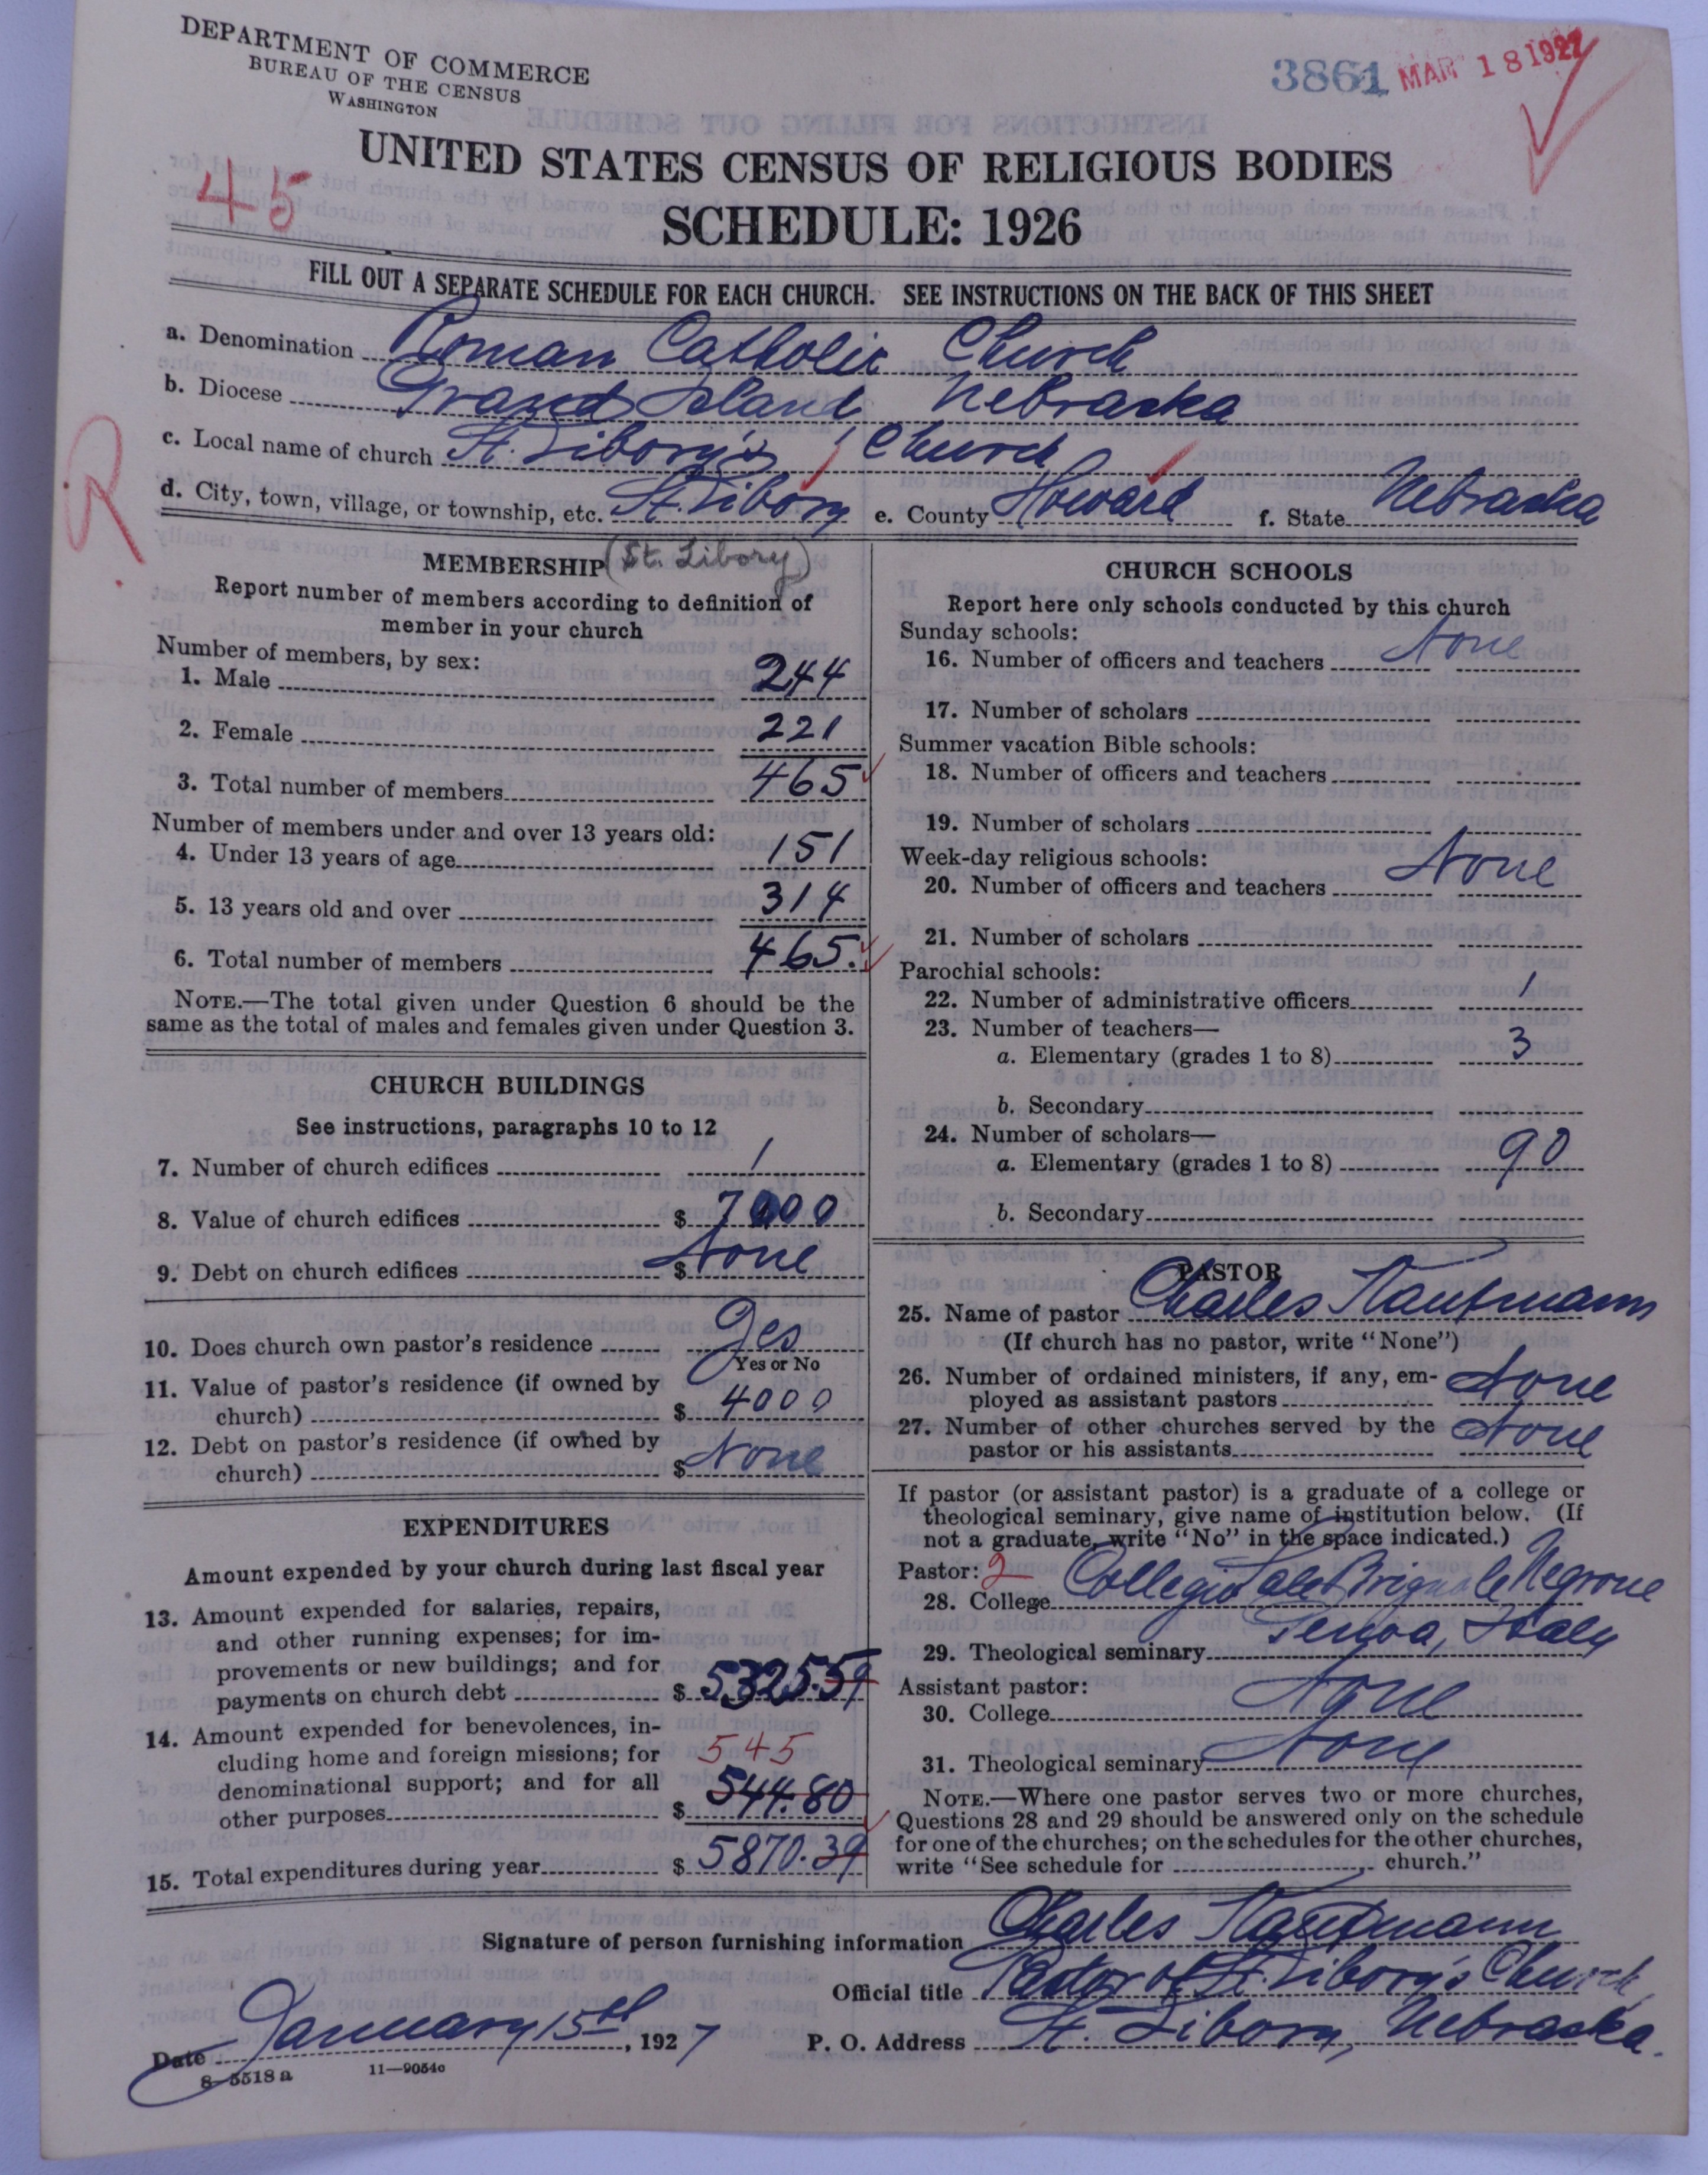 DEPARTMENT OF COMMERCE
BUREAU OF THE CENSUS
WASHINGTON
3861 MAR 18 1927
45
UNITED STATES CENSUS OF RELIGIOUS BODIES
SCHEDULE: 1926
FILL OUT A SEPARATE SCHEDULE FOR EACH CHURCH. SEE INSTRUCTIONS ON THE BACK OF THIS SHEET
a. Denomination Roman Catholic Church
b. Diocese Grand Island Nebraska
c. Local name of church St. Libory's Church
R
d. City, town, village, or township, etc. St. Libory e. County Howard f. State Nebraska
MEMBERSHIP (St. Libory)
Report number of members according to definition of
member in your church
Number of members, by sex:
1. Male 244
2. Female 221
3. Total number of members 465
Number of members under and over 13 years old:
4. Under 13 years of age 151
5. 13 years old and over 314
6. Total number of members 465.
NOTE.—The total given under Question 6 should be the
same as the total of males and females given under Question 3.
CHURCH BUILDINGS
See instructions, paragraphs 10 to 12
7. Number of church edifices 1
8. Value of church edifices $ 7000
9. Debt on church edifices $ None
10. Does church own pastor's residence Yes
Yes or No
11. Value of pastor's residence (if owned by
church) $ 4000
12. Debt on pastor's residence (if owned by
church) $ None
EXPENDITURES
Amount expended by your church during last fiscal year
13. Amount expended for salaries, repairs,
and other running expenses; for im-
provements or new buildings; and for
payments on church debt $ 5325.59
14. Amount expended for benevolences, in-
cluding home and foreign missions; for 545
denominational support; and for all
other purposes $ 544.80
15. Total expenditures during year $ 5870.39
CHURCH SCHOOLS
Report here only schools conducted by this church
Sunday schools:
16. Number of officers and teachers None
17. Number of scholars
Summer vacation Bible schools:
18. Number of officers and teachers
19. Number of scholars
Week-day religious schools:
20. Number of officers and teachers None
21. Number of scholars
Parochial schools:
22. Number of administrative officers 1
23. Number of teachers—
a. Elementary (grades 1 to 8) 3
b. Secondary
24. Number of scholars—
a. Elementary (grades 1 to 8) 90
b. Secondary
PASTOR
25. Name of pastor Charles Kaufmann
(If church has no pastor, write "None")
26. Number of ordained ministers, if any, em-
ployed as assistant pastors None
27. Number of other churches served by the
pastor or his assistants None
If pastor (or assistant pastor) is a graduate of a college or
theological seminary, give name of institution below. (If
not a graduate, write "No" in the space indicated.)
Pastor: 2
28. College Collegio Brignole Negrone
Genoa, Italy
29. Theological seminary
Assistant pastor:
30. College None
31. Theological seminary None
NOTE.—Where one pastor serves two or more churches,
Questions 28 and 29 should be answered only on the schedule
for one of the churches; on the schedules for the other churches,
write "See schedule for , church."
Signature of person furnishing information Charles Kaufmann
Official title Pastor of St. Libory's Church
Date January 15th, 1927 P. O. Address St. Libory, Nebraska.
8-5518 a 11—9054c